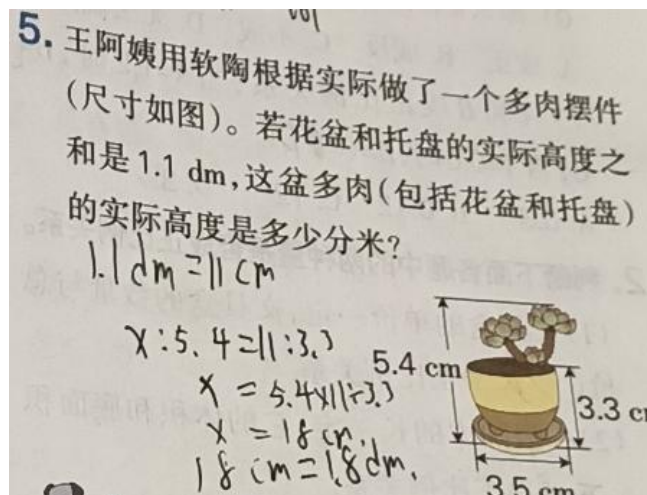 5. 王阿姨用软陶根据实际做了一个多肉摆件
(尺寸如图)。若花盆和托盘的实际高度之
和是 1.1 dm,这盆多肉(包括花盆和托盘)
的实际高度是多少分米?
1.1 dm = 11 cm
x : 5.4 = 11 : 3.3
x = 5.4×11÷3.3
x = 18 cm.
18 cm = 1.8 dm.
5.4 cm
3.3 c
3.5 cm